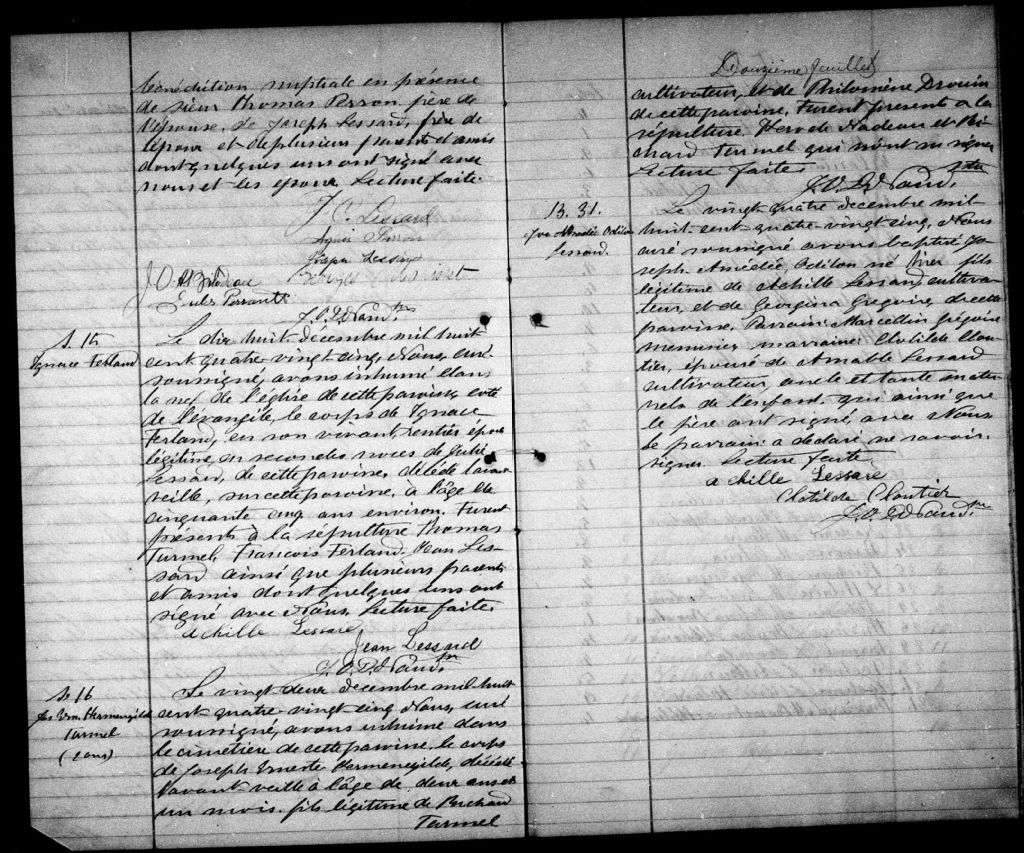 bénédiction nuptiale en présence
de sieur Thomas Perron père de
l'épouse, de Joseph Lessard, père de
l'époux et de plusieurs parents et amis
dont quelques uns ont signé avec
nous et les époux. Lecture faite.
J. O. Lessard
Agnès Perron
Joseph Lessard
J. O. A. Bilodeau
Eules Perrault
S. 15
Ignace Ferland
Le dix huit décembre mil huit
cent quatre-vingt cinq, Nous, curé
soussigné, avons inhumé dans
la nef de l'église de cette paroisse, coté
de l'évangile, le corps de Ignace
Ferland, en son vivant, rentier, époux
légitime en secondes noces de Julie
Lessard, de cette paroisse, décédé l'avant
veille, sur cette paroisse, à l'âge de
cinquante cinq ans environ. Furent
présents à la sépulture Thomas
Turmel, François Ferland, Jean Les-
sard ainsi que plusieurs parents
et amis dont quelques uns ont
signé avec Nous. Lecture faite.
Achille Lessard
Jean Lessard
S. 16
Jos Erm. Hermenégilde
Turmel
(2 ans)
Le vingt deux décembre mil huit
cent quatre vingt cinq Nous, curé
soussigné, avons inhumé dans
le cimetière de cette paroisse, le corps
de Joseph Hermenegilde, décédé
l'avant veille à l'âge de deux ans et
un mois. fils légitime de Richard
Turmel
Douzième feuillet
cultivateur, et de Philomène Drouin
de cette paroisse. Furent présents à la
sépulture Nadeau et Ri-
chard Turmel qui n'ont su signer
Lecture faite.
B. 31.
Jos Amédée Odilon
Lessard.
Le vingt quatre décembre mil
huit-cent-quatre-vingt-cinq, Nous
curé soussigné avons baptisé Jo-
seph Amédée, Odilon né hier fils
légitime de Achille Lessard cultiva-
teur, et de Georgina Grégoire, de cette
paroisse. Parrain: Marcellin Grégoire
menuisier marraine: Clotilde Clou-
tier, épouse de Amable Lessard
cultivateur, oncle et tante mater-
nels de l'enfant, qui ainsi que
le père ont signé, avec Nous
le parrain a déclaré ne savoir
signer. Lecture faite.
Achille Lessard
Clotilde Cloutier